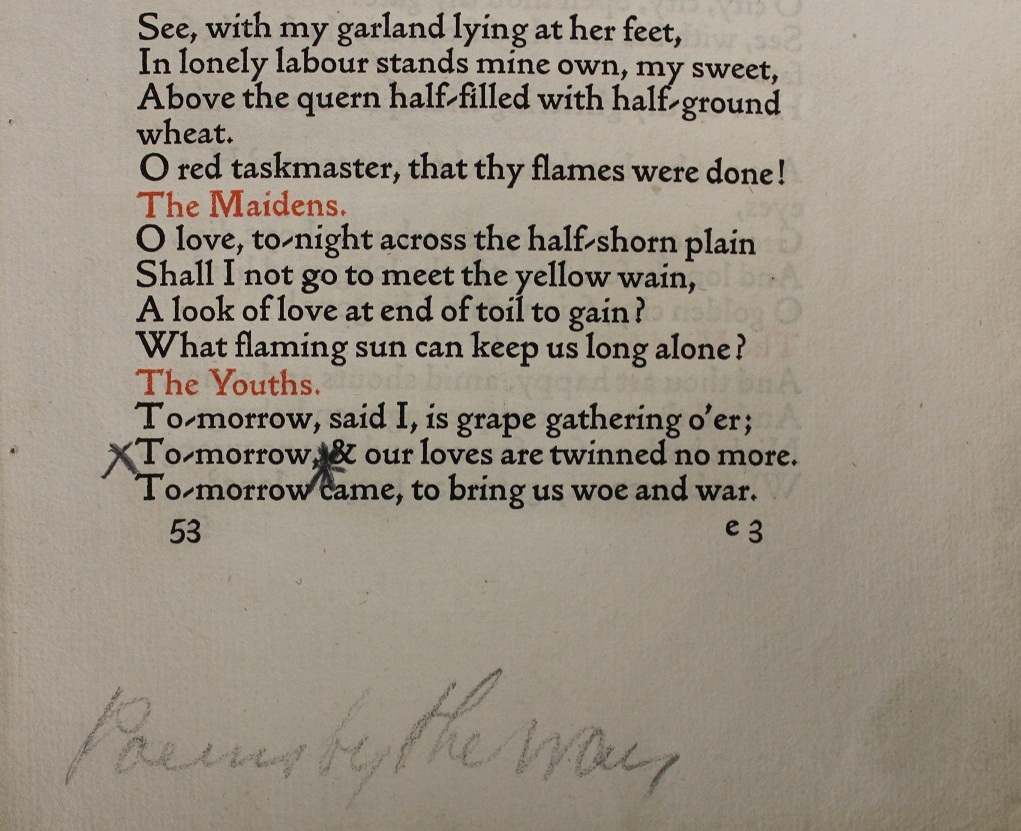 See, with my garland lying at her feet,
In lonely labour stands mine own, my sweet,
Above the quern half-filled with half-ground
wheat.
O red taskmaster, that thy flames were done!
The Maidens.
O love, to-night across the half-shorn plain
Shall I not go to meet the yellow wain,
A look of love at end of toil to gain?
What flaming sun can keep us long alone?
The Youths.
To-morrow, said I, is grape gathering o'er;
To-morrow, & our loves are twinned no more.
To-morrow came, to bring us woe and war.
53 e 3
Poems by the Way